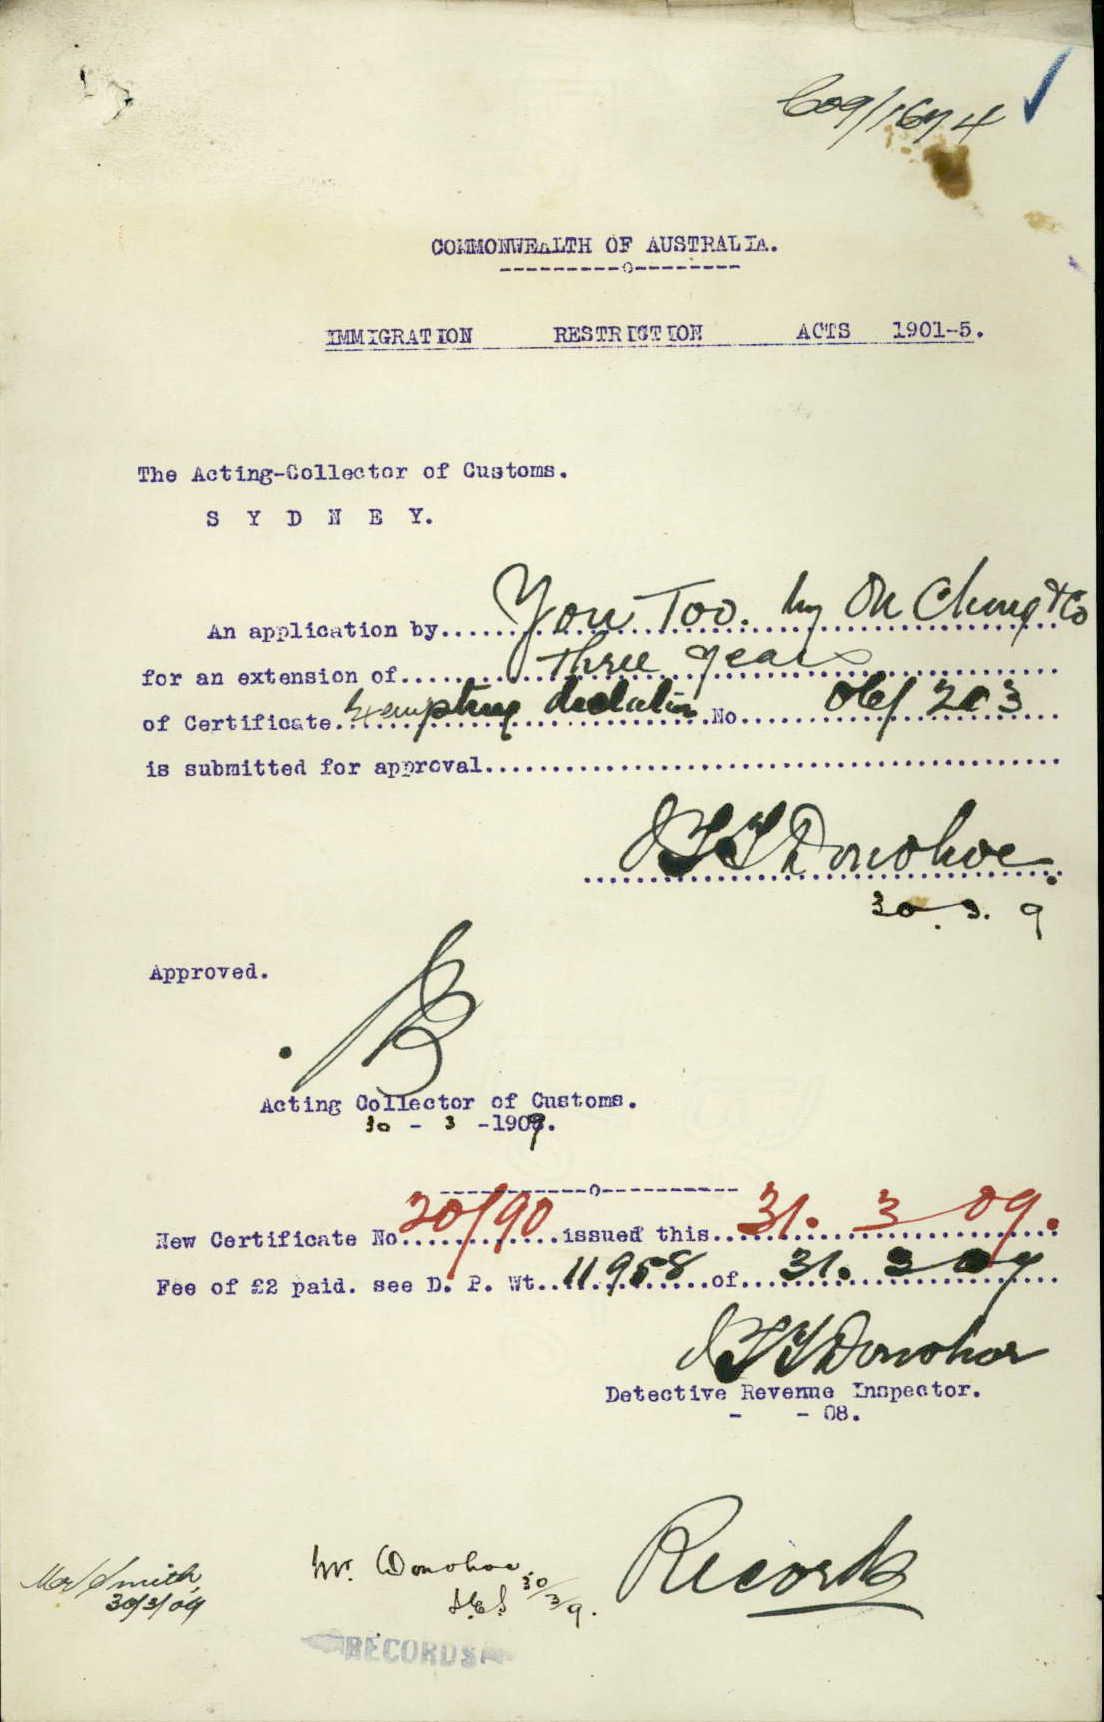 C09/1674
COMMONWEALTH OF AUSTRALIA.
---------o---------
IMMIGRATION RESTRICTION ACTS 1901-5.
The Acting-Collector of Customs.
S Y D N E Y.
An application by You Too. by On Chong & Co
for an extension of three years
of Certificate Exempting dictation No 06/203
is submitted for approval
Donohoe
30.3.9
Approved.
Acting Collector of Customs.
30 - 3 -1909.
---------o---------
New Certificate No 20/90 issued this 31. 3 09.
Fee of £2 paid. see D. P. Wt. 11958 of 31. 3 09
Donohoe
Detective Revenue Inspector.
- - 08.
Mr Smith
30/3/09
Mr. Donohoe
30/3/9.
Records
RECORDS